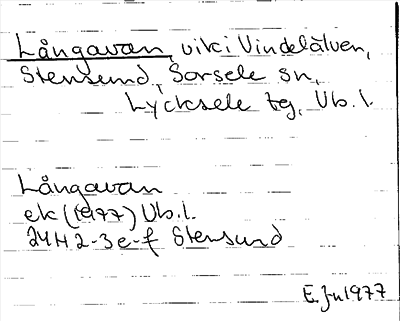 Långavan, vik i Vindelälven,
Stensund, Sorsele sn,
Lycksele tg, Vb.l.
Långavan
ek (1977) Vb.l.
24H 2-3e-f Stensund
E. Ju 1977